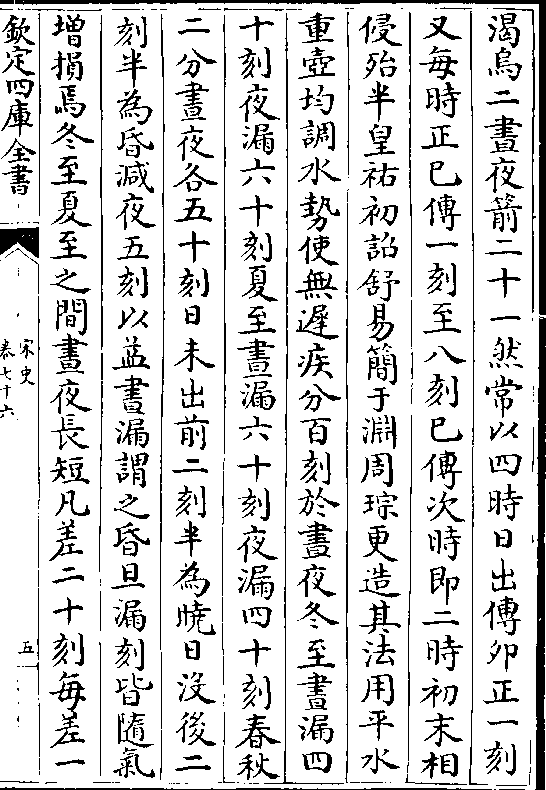 渴烏二晝夜箭二十一然常以四時日出傳卯正一刻
又每時正已傳一刻至八刻已傳次時即二時初末相
侵殆半皇祐初詔舒易簡于淵周琮更造其法用平水
重壺均調水勢使無遲疾分百刻於晝夜冬至晝漏四
十刻夜漏六十刻夏至晝漏六十刻夜漏四十刻春秋
二分晝夜各五十刻日未出前二刻半為曉日沒後二
刻半為昏減夜五刻以益晝漏謂之昏旦漏刻皆隨氣
增損焉冬至夏至之間晝夜長短凡差二十刻每差一
欽定四庫全書
宋史
卷七十六
五